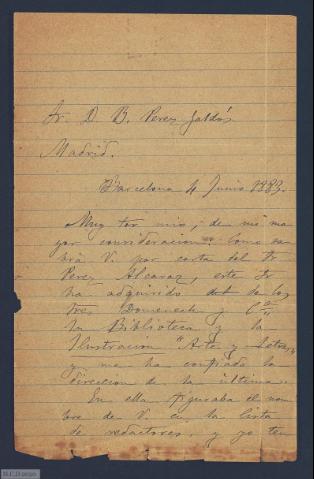 Sr. D. B. Perez Galdós
Madrid.
Barcelona 4 Junio 1883.
Muy Sor mio, de mi ma
yor consideracion: Como sa
brá V. por carta del Sr
Perez Alcaraz, este Sr
ha adquirido de los
Sres Domenech y Ca
su Biblioteca y la
Ilustración "Arte y Letras"
y me ha confiado la
direccion de la última.
En ella figuraba el nom
bre de V. en la lista
de redactores, y yo ten